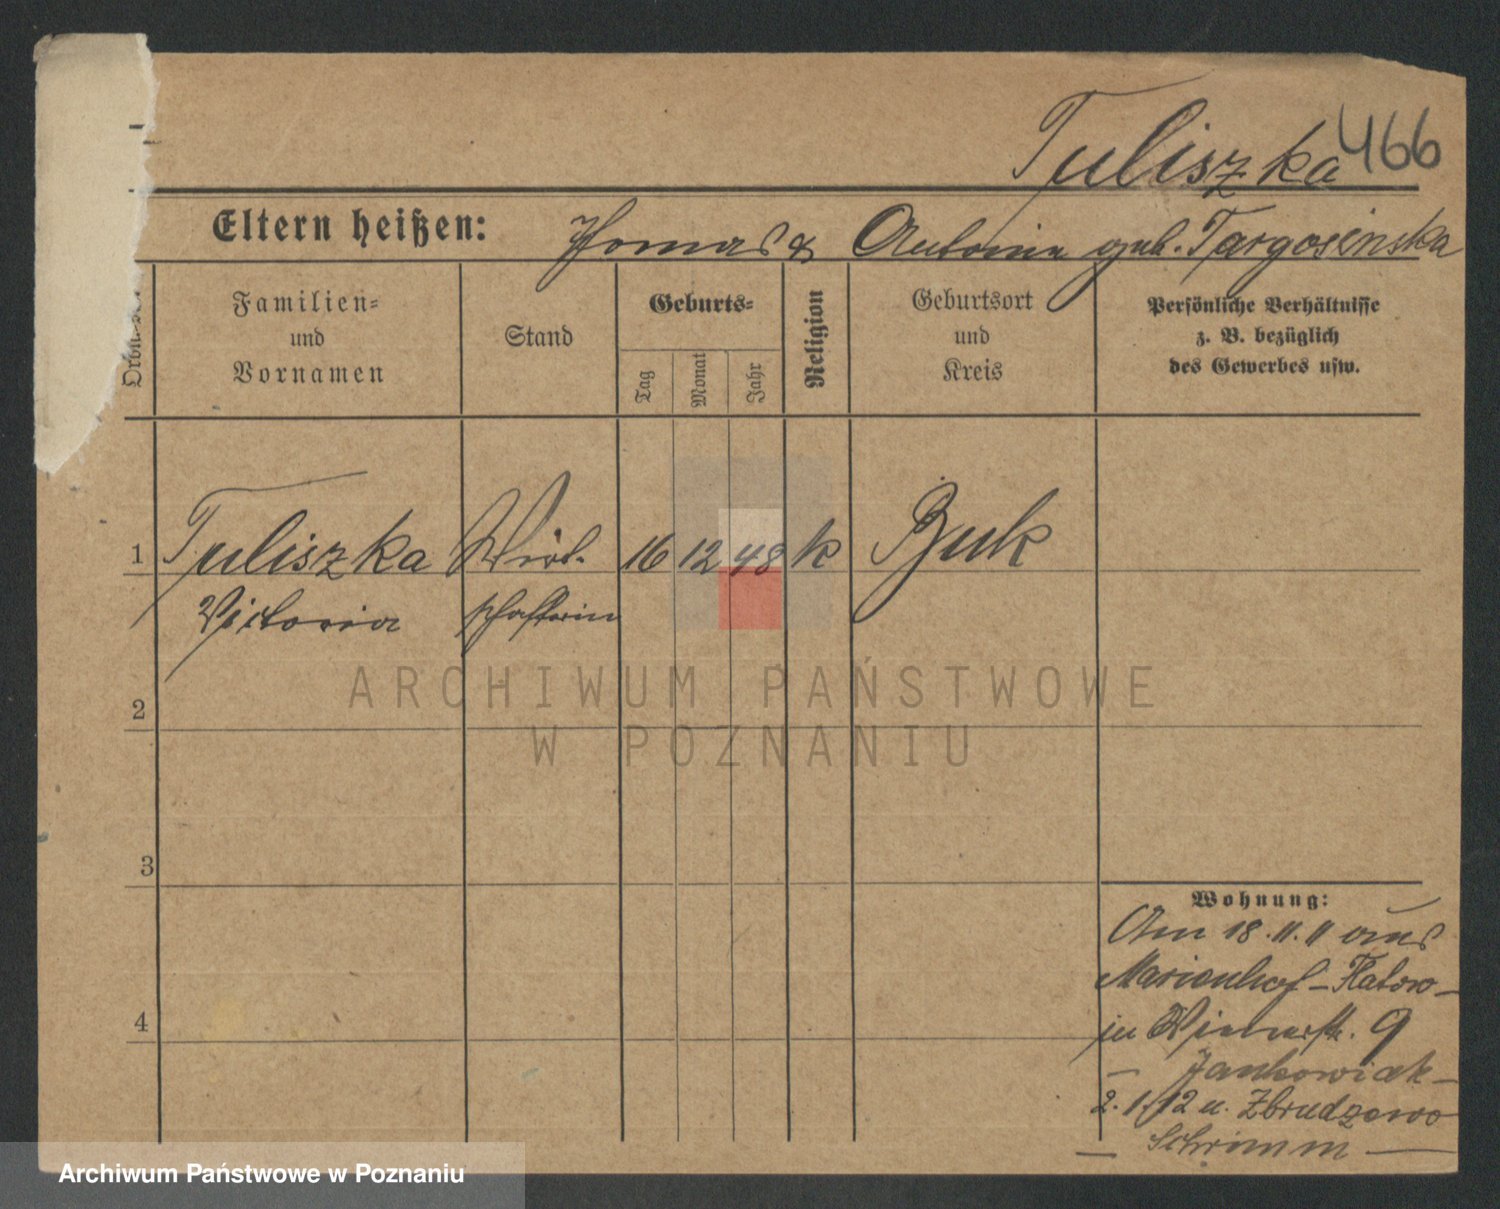 Tuliszka 466
Eltern heißen: Thomas & Antonie geb. Targosinska
Familien=
und
Vornamen
Stand
Geburts=
Tag
Monat
Jahr
Religion
Geburtsort
und
Kreis
Persönliche Verhältnisse
z. B. bezüglich
des Gewerbes usw.
1 Tuliszka Wirt- 16 12 48 k Buk
Victoria schafterin
2
3
4
Wohnung:
Am 18.11.11 aus
Marienhof – Flatow –
in 9
– Jankowiak –
2.1.12 n. Zbrudzewo
– Schrimm –
ARCHIWUM PAŃSTWOWE
W POZNANIU
Archiwum Państwowe w Poznaniu